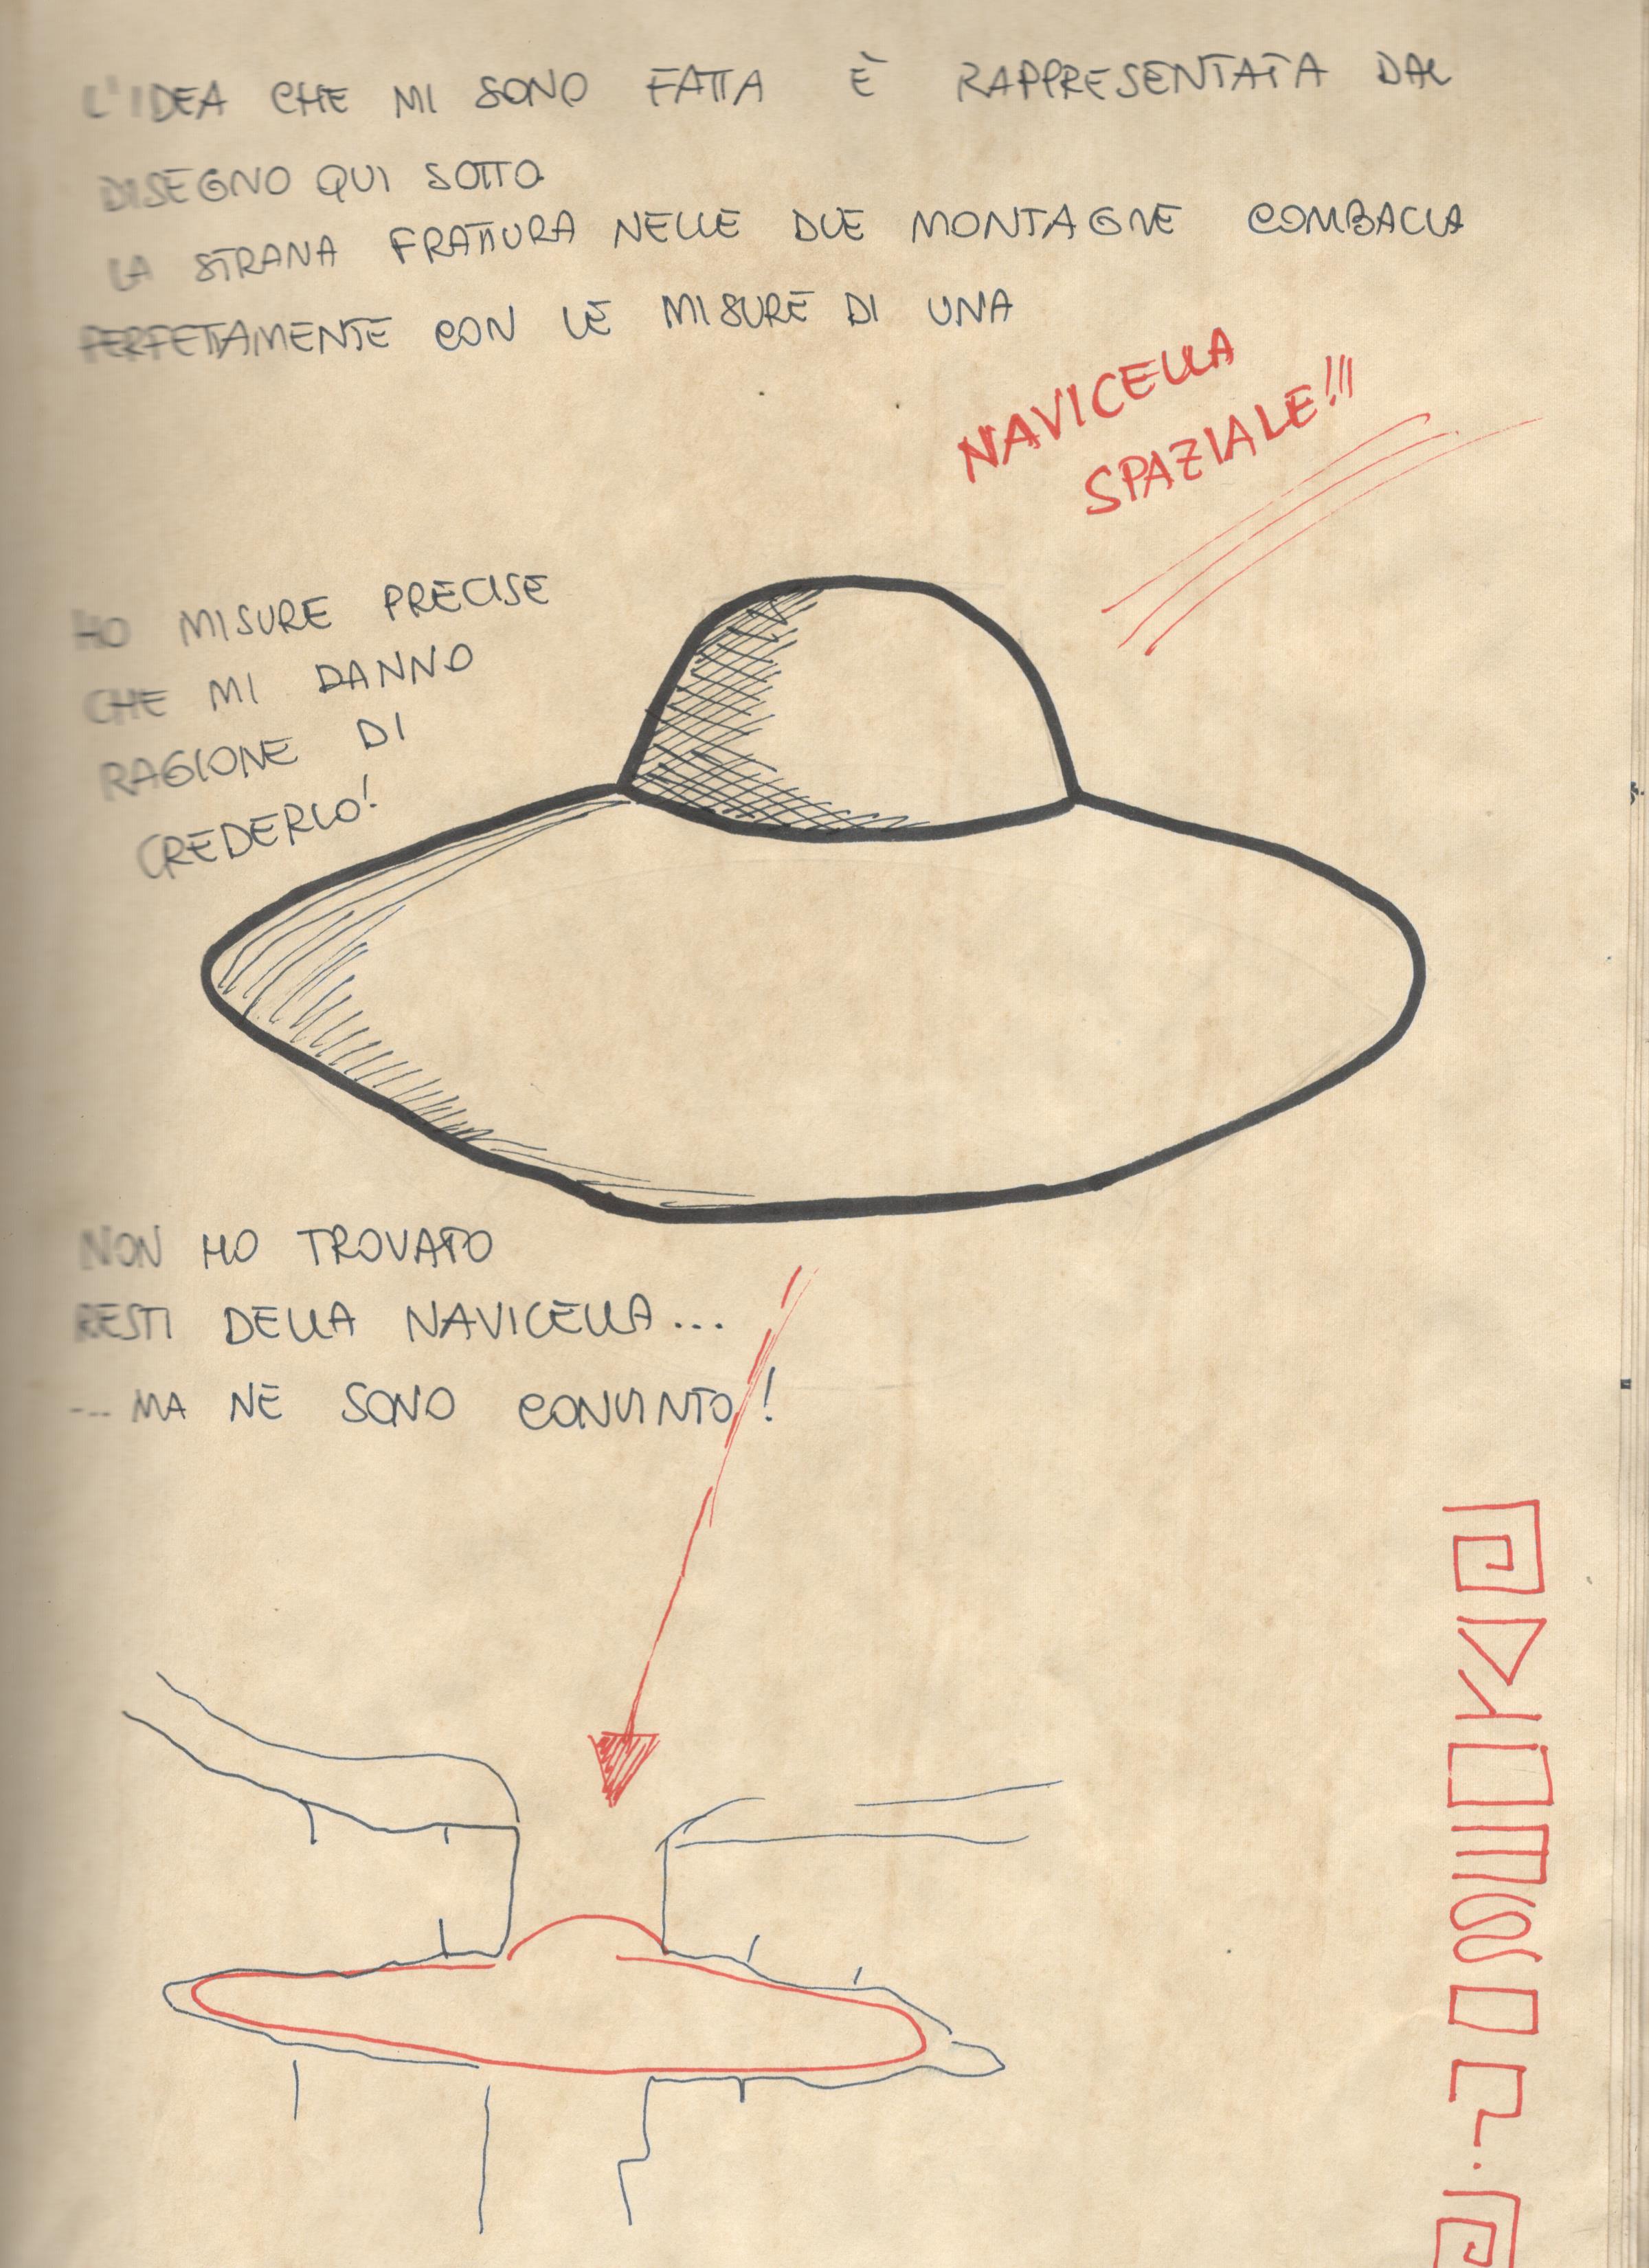 L'IDEA CHE MI SONO FATTA È RAPPRESENTATA DAL
DISEGNO QUI SOTTO
LA STRANA FRATTURA NELLE DUE MONTAGNE COMBACIA
PERFETTAMENTE CON LE MISURE DI UNA
NAVICELLA
SPAZIALE!!!
HO MISURE PRECISE
CHE MI DANNO
RAGIONE DI
CREDERLO!
NON HO TROVATO
RESTI DELLA NAVICELLA...
...MA NE SONO CONVINTO!